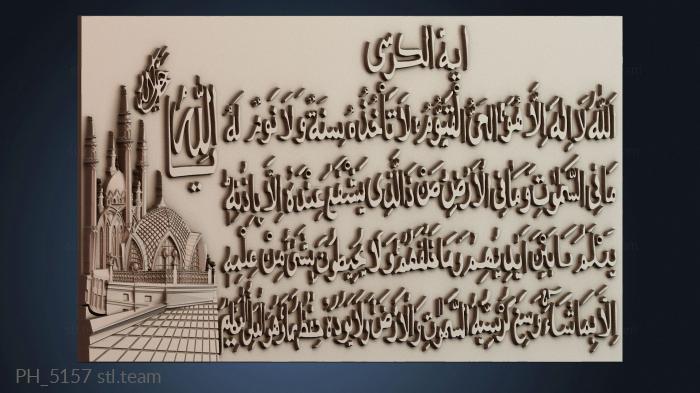 آية الكرسي
الله
جل جلاله
الله لا إله إلا هو الحي القيوم لا تأخذه سنة ولا نوم له
ما في السموات وما في الأرض من ذا الذي يشفع عنده إلا بإذنه
يعلم ما بين أيديهم وما خلفهم ولا يحيطون بشيء من علمه
إلا بما شاء وسع كرسيه السموات والأرض ولا يؤده حفظهما وهو العلي العظيم
PH_5157 stl.team